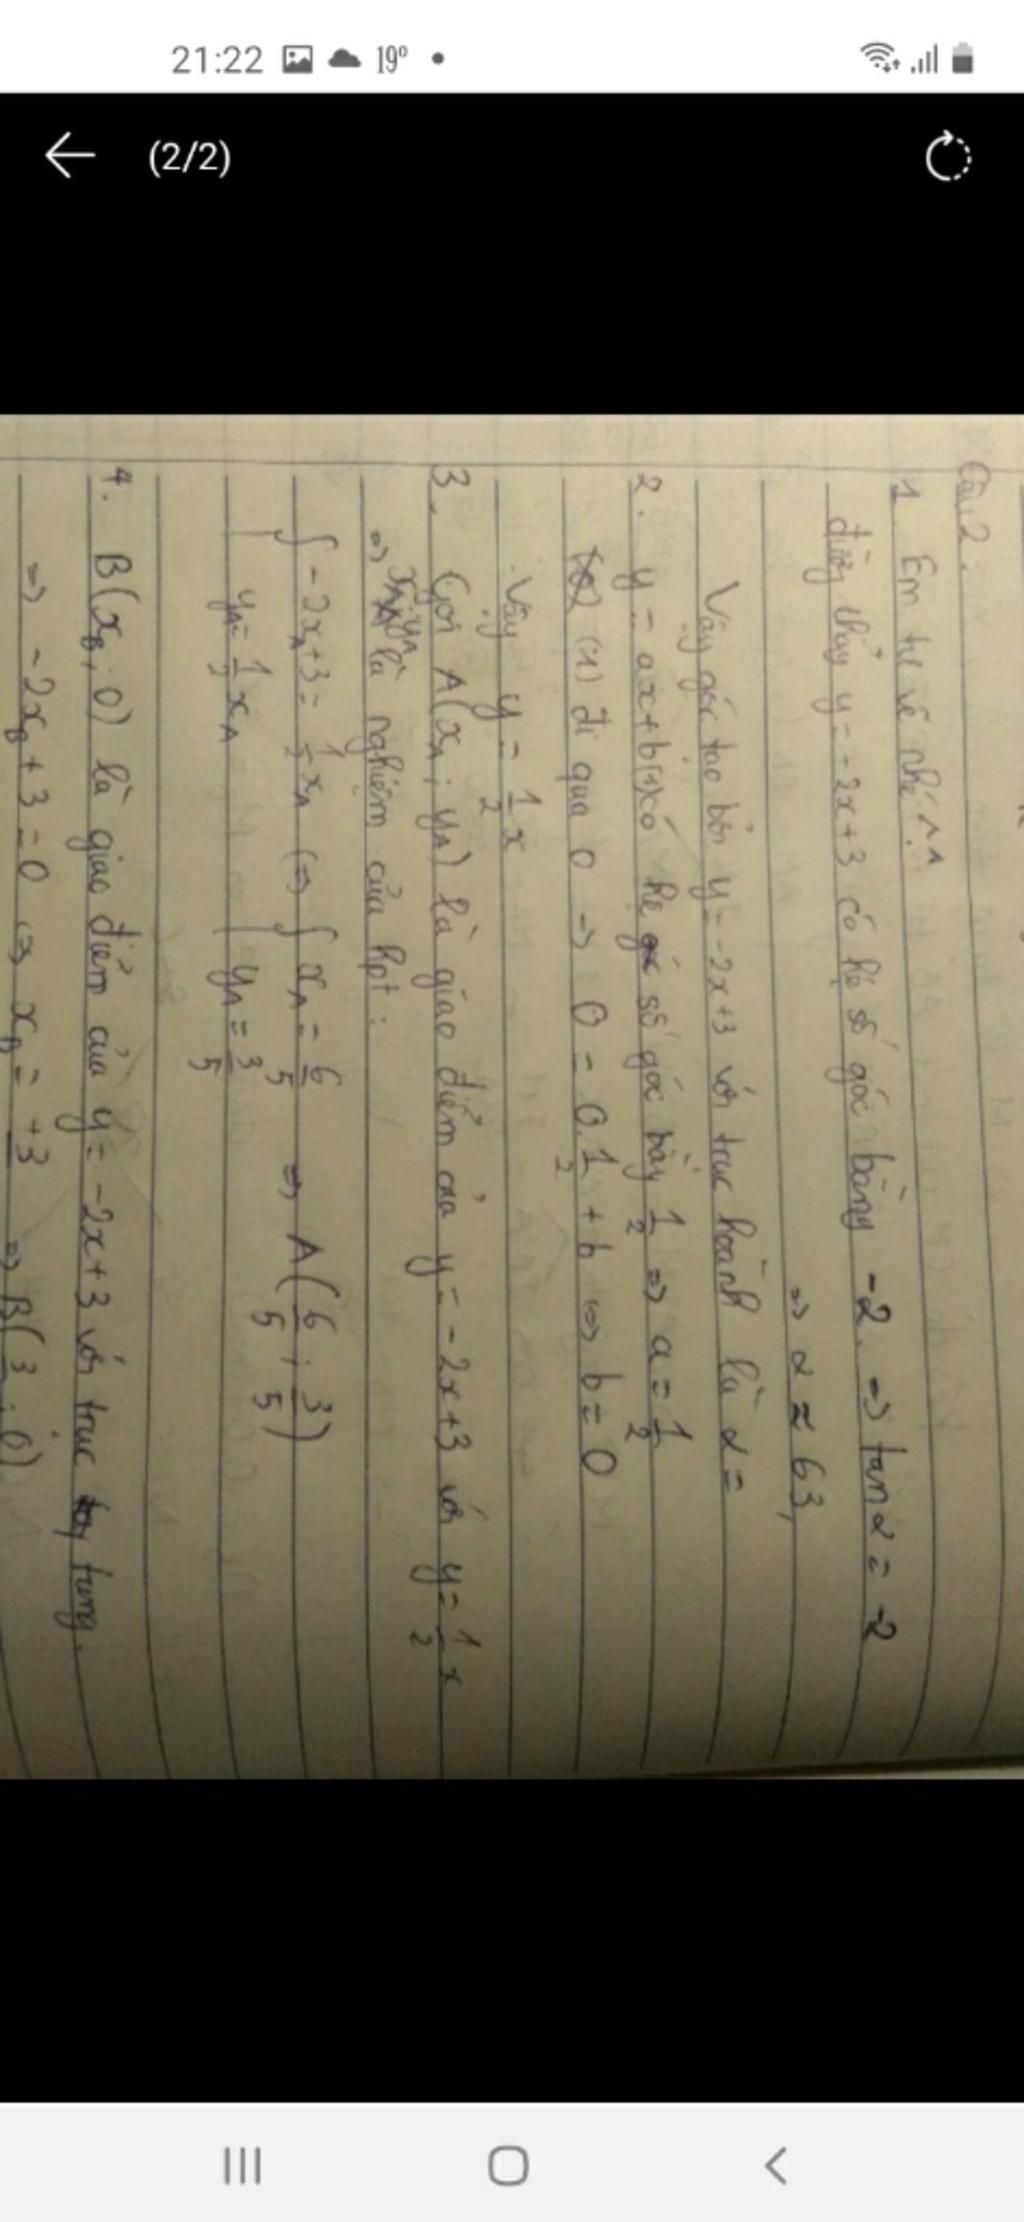 21:22 19°
(2/2)
Câu 2.
1. Em tự vẽ nhé ^.^
đường thẳng y = -2x+3 có hệ số góc bằng -2. => tan α = -2
=> α ≈ 63,
Vậy góc tạo bởi y = -2x+3 với trục hoành là α =
2. y = ax+b (1) có hệ số góc bằng 1/2 => a = 1/2
(1) đi qua O -> 0 = 0.1/2 + b <=> b = 0
Vậy y = 1/2 x
3. Gọi A(x_A; y_A) là giao điểm của y = -2x+3 với y = 1/2 x
=> x_A, y_A là nghiệm của hpt:
{ -2x_A+3 = 1/2 x_A <=> { x_A = 6/5 => A(6/5; 3/5)
y_A = 1/2 x_A y_A = 3/5
4. B(x_B; 0) là giao điểm của y = -2x+3 với trục tung.
=> -2x_B + 3 = 0 <=> x_B = +3 => B(3; 0)